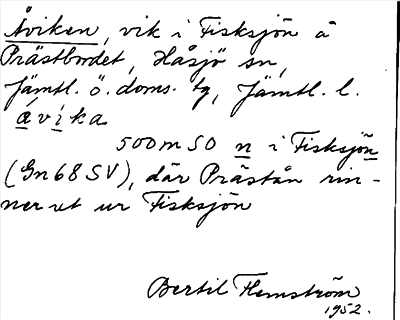 Åviken, vik i Fisksjön å
Prästbordet, Håsjö sn,
Jämtl. ö. doms. tg, Jämtl. l.
ávika
500 m SO n i Fisksjön
(Gn 68 SV), där Prästån rin-
ner ut ur Fisksjön
Bertil Flemström
1952.